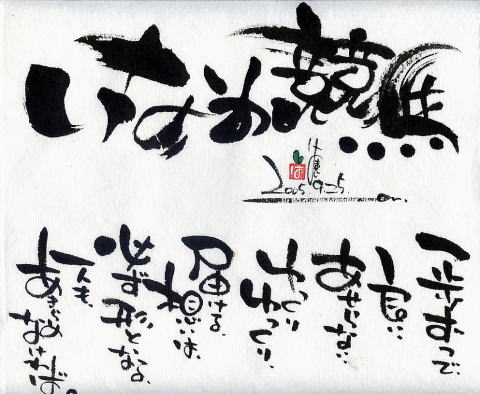 いなか競馬
2005.9.25.
一歩ずつで、
良い。
あせらない。
ゆっくり
ゆっくり、
届ける、
想いは、
必ず形となる。
一人も、
あきらめ
なければ。